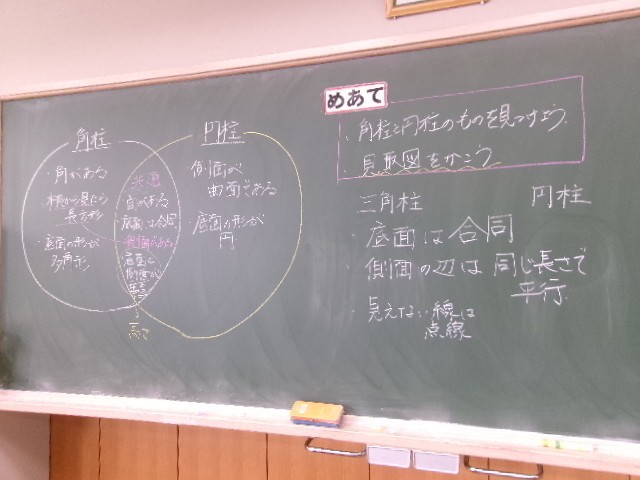 めあて
・角柱と円柱のものを見つけよう。
・見取図をかこう。
角柱
・角がある
・横から見たら
長方形
・底面の形が
多角形
共通
底面は合同
円柱
・側面が
曲面である
・底面の形が
円
高さ
三角柱
円柱
・底面は合同
・側面の辺は同じ長さで
平行
・見えない線は
点線